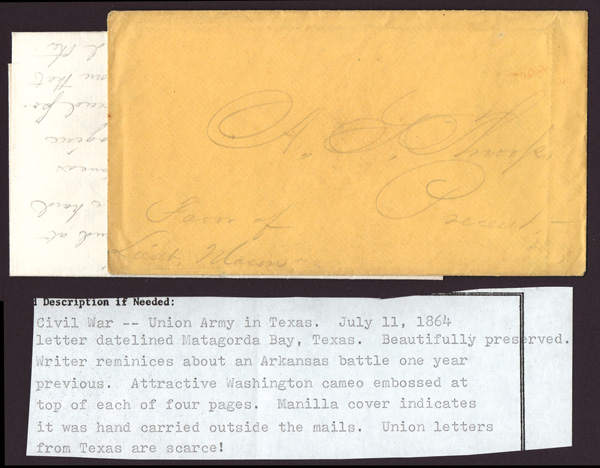 Favor of
Lieut. Mason
d Description if Needed:
Civil War -- Union Army in Texas. July 11, 1864
letter datelined Matagorda Bay, Texas. Beautifully preserved.
Writer reminices about an Arkansas battle one year
previous. Attractive Washington cameo embossed at
top of each of four pages. Manilla cover indicates
it was hand carried outside the mails. Union letters
from Texas are scarce!